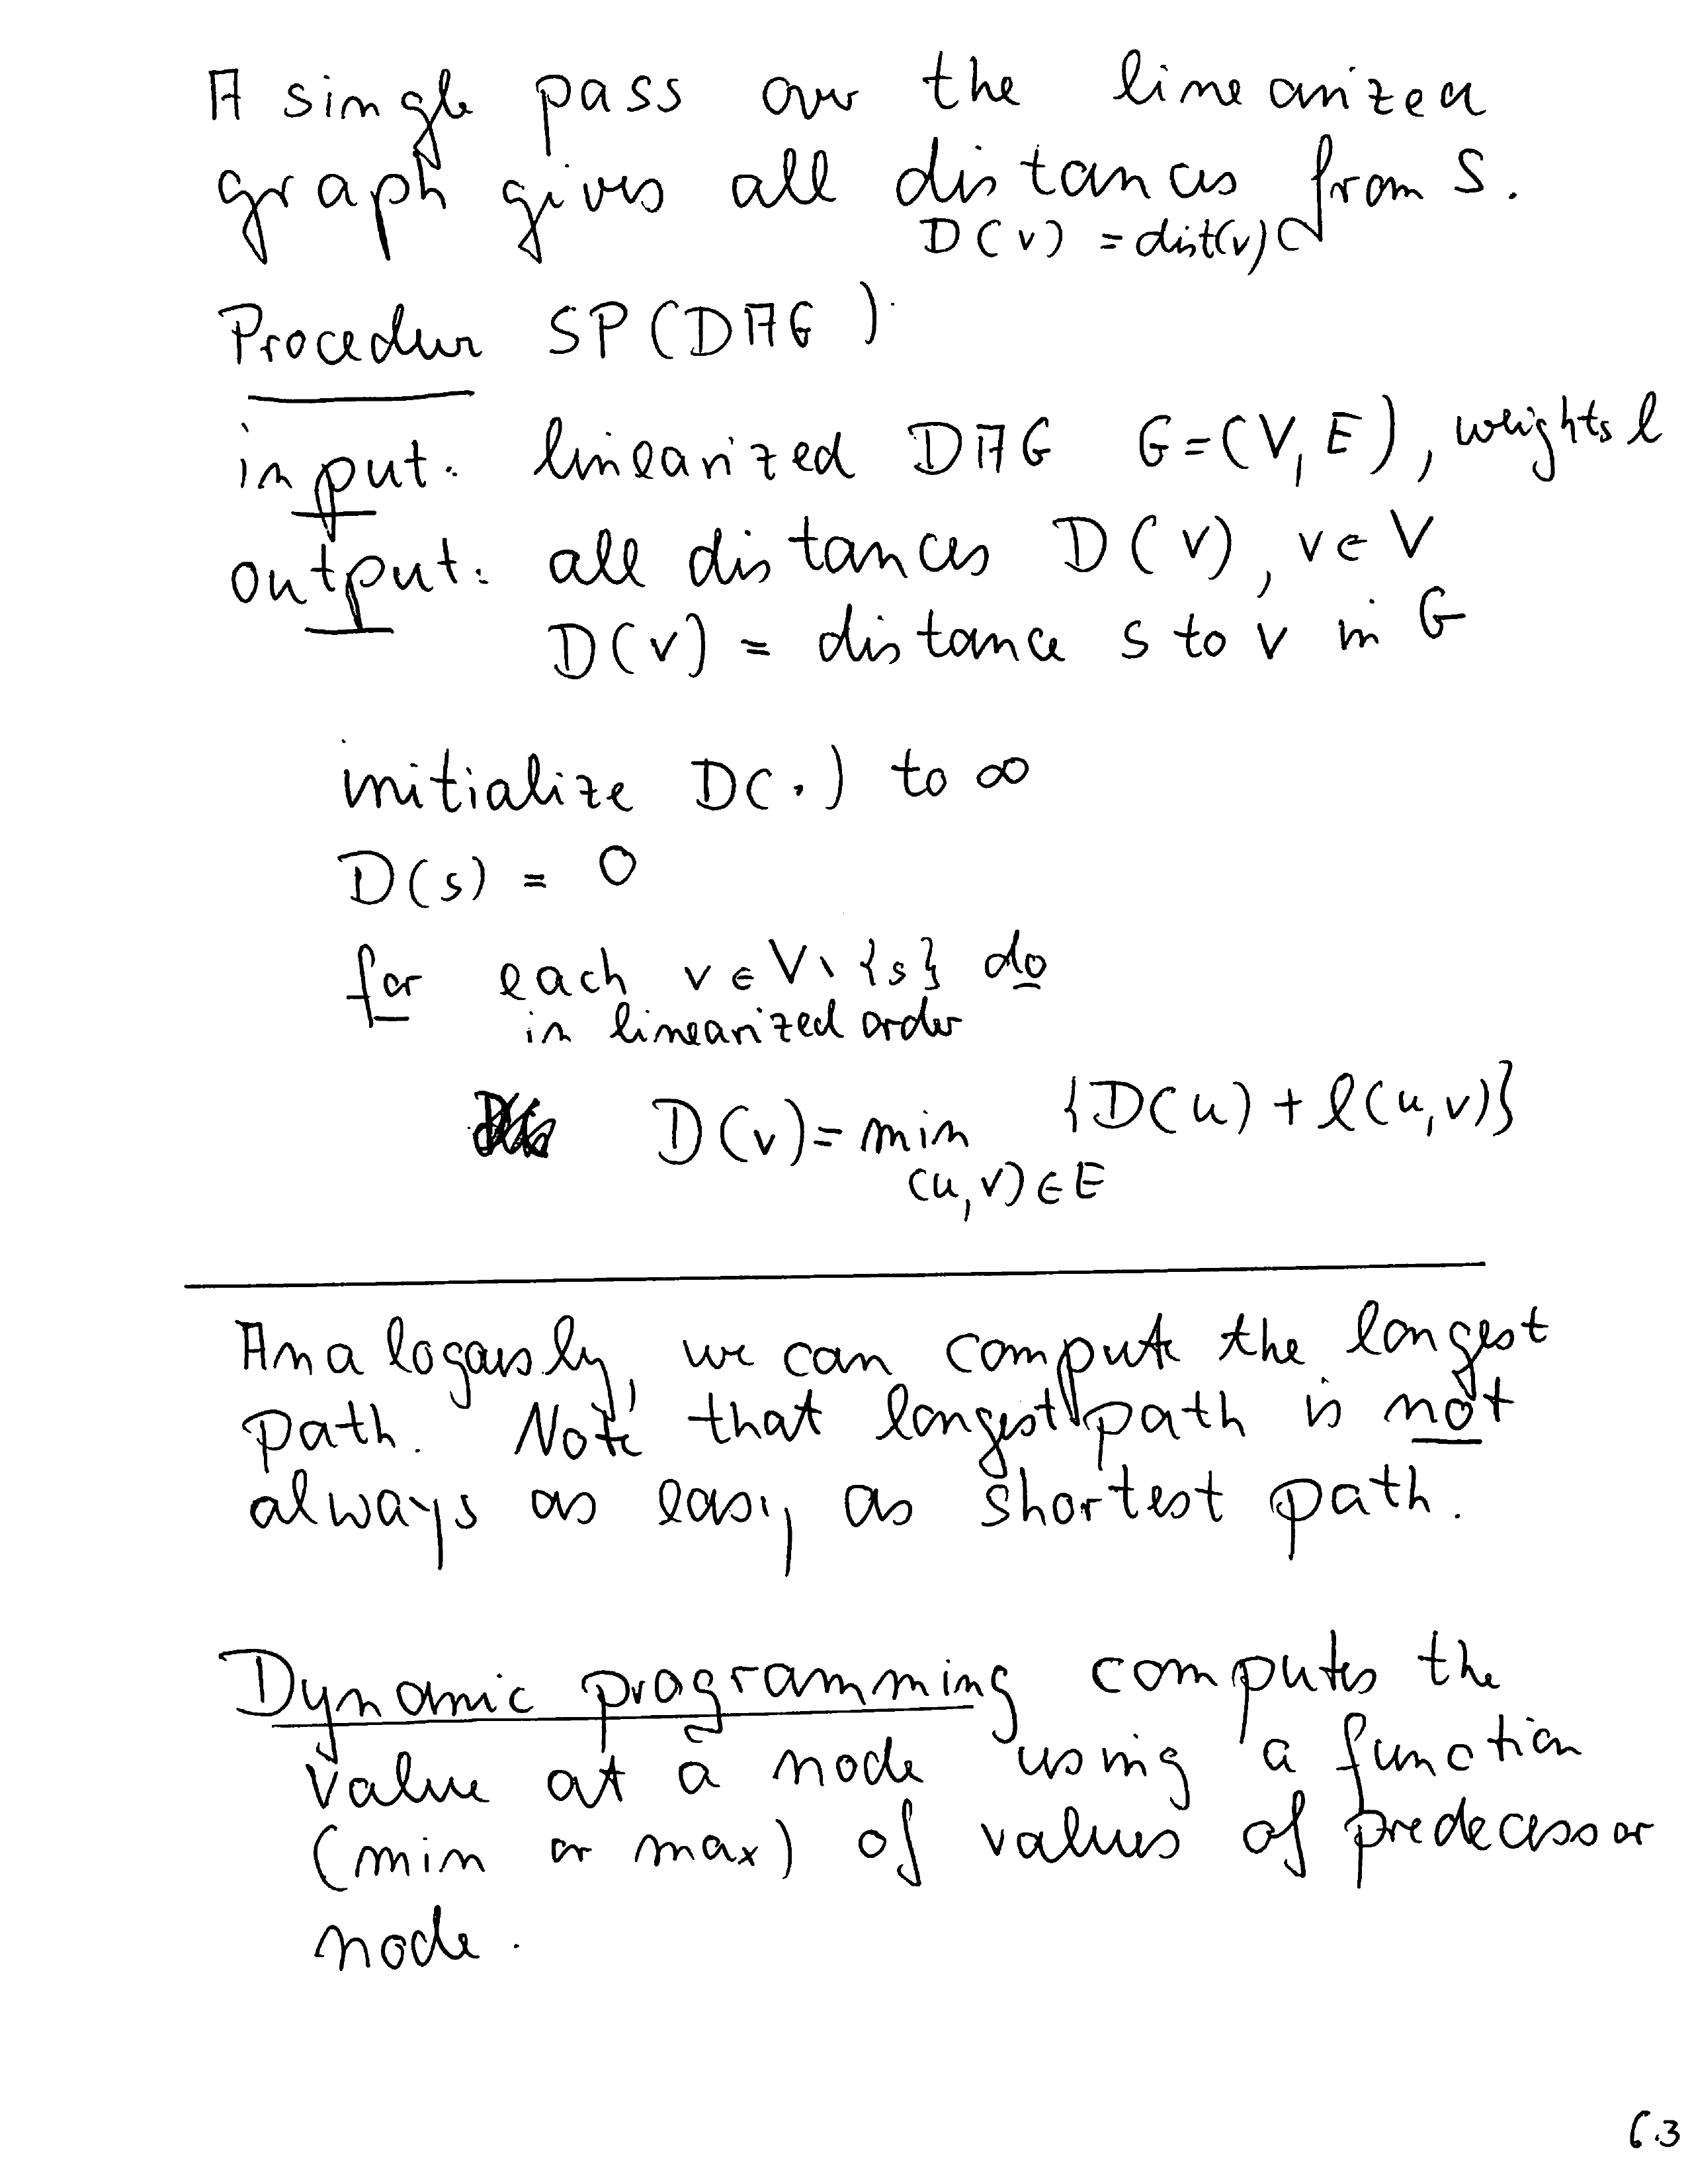 A single pass over the linearized
graph gives all distances from S.
D(v) = dist(v)
Procedure SP(DAG)
input: linearized DAG G=(V,E), weights l
output: all distances D(v), v∈V
D(v) = distance s to v in G
initialize D(.) to ∞
D(s) = 0
for each v∈V\{s} do
in linearized order
D(v)=min {D(u)+l(u,v)}
(u,v)∈E
Analogously, we can compute the longest
path. Note that longest path is not
always as easy as shortest path.
Dynamic programming computes the
value at a node using a function
(min or max) of values of predecessor
node.
6.3